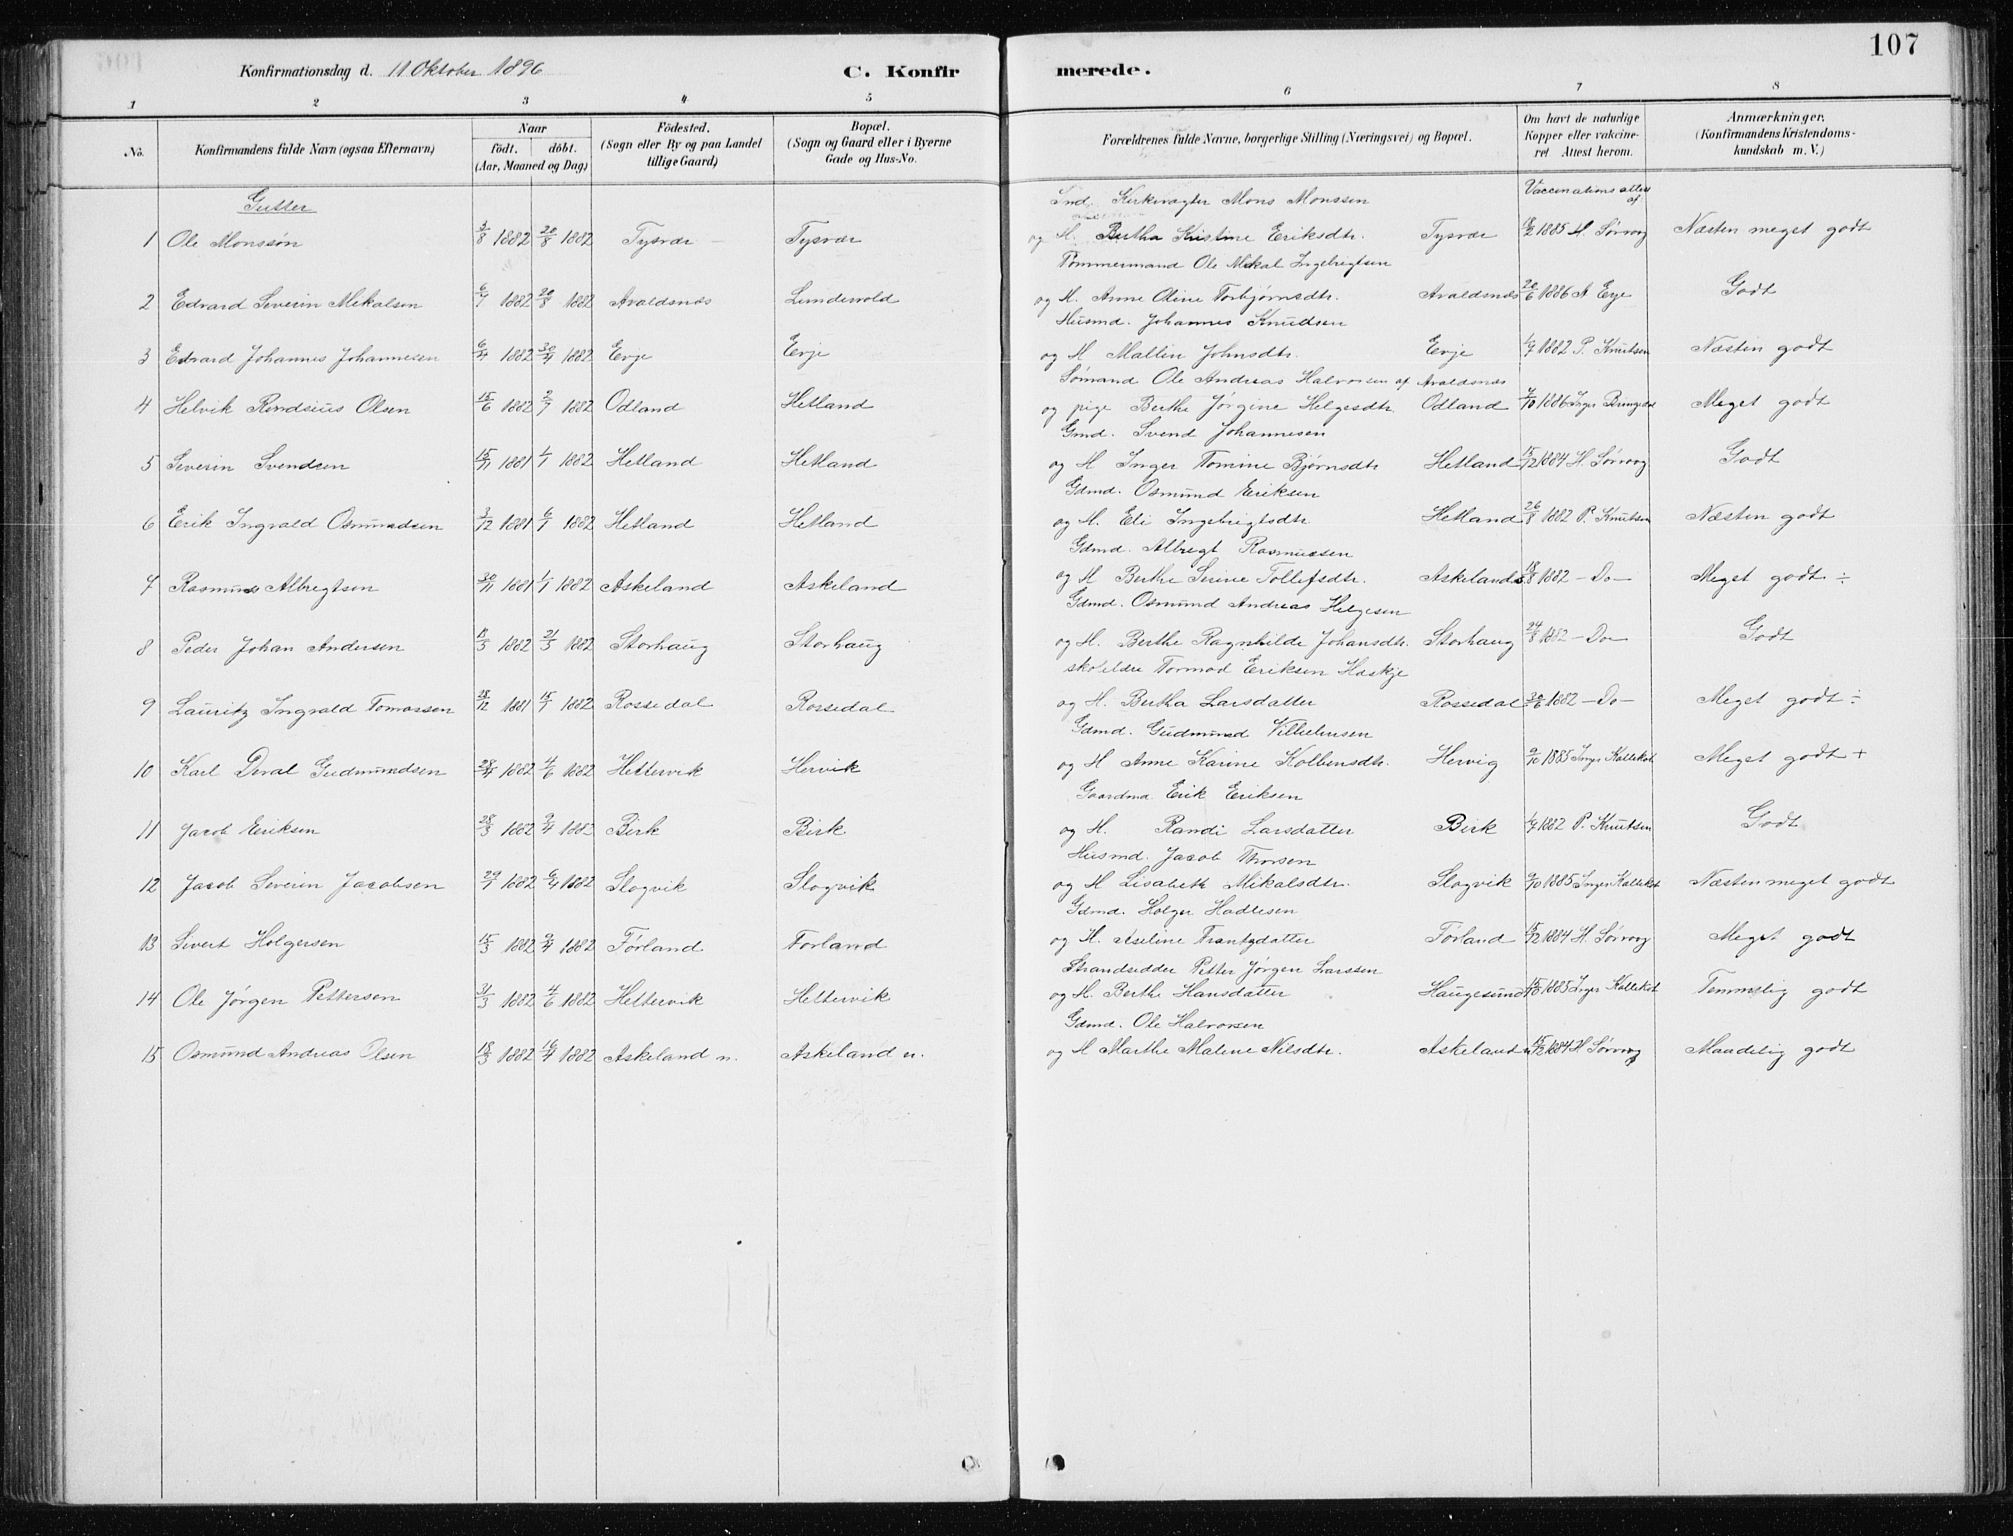 107
Konfirmationsdag d. 11 Oktober 1896
C. Konfirmerede.
1 2 3 4 5 6 7 8
No. Konfirmandens fulde Navn (ogsaa Efternavn) Naar födt. döbt. (Aar, Maaned og Dag) Födested. (Sogn eller By og paa Landet tillige Gaard) Bopæl. (Sogn og Gaard eller i Byerne Gade og Hus-No. Forældrenes fulde Navne, borgerlige Stilling (Næringsvei) og Bopæl. Om havt de naturlige Kopper eller vakcineret Attest herom. Anmærkninger. (Konfirmandens Kristendomskundskab m. V.)
Gutter
Vaccinations attest af
Ind. Kirkevagter Mons Monssen
1 Ole Monssøn 3/8 1882 20/8 1882 Tysvær Tysvær og H. Bertha Kristine Eriksdtr. Tysvær 1885 H. Sørvaag Næsten meget godt
Tømmermand Ole Mikal Ingebregtsen
2 Edvard Severin Mikalsen 6/7 1882 20/8 1882 Avaldsnæs Lundevold og H. Anne Oline Torbjørnsdtr. Avaldsnæs 20/6 1886 A Eye Godt
Husmd. Johannes Knudsen
3 Edvard Johannes Johannesen 6/4 1882 30/4 1882 Evje Evje og H Mallin Johnsdtr. Evje 1882 P. Knutsen Næsten godt
Sømand Ole Andreas Halvorsen af Avaldsnæs
4 Helvik Olsen 15/6 1882 2/7 1882 Odland Hetland og pige Berthe Jørgine Helgesdtr Odland 7/10 1886 Inger Bringedal Meget godt
Gmd. Svend Johannesen
5 Severin Svendsen 15/11 1881 1/1 1882 Hetland Hetland og H Inger Tomine Bjørnsdtr Hetland 15/12 1884 H. Sørvaag Godt
Gdmd. Osmund Eriksen
6 Erik Ingvald Osmundsen 3/12 1881 6/1 1882 Hetland Hetland og H. Eli Ingebrigtsdtr Hetland 26/8 1882 P. Knutsen Næsten godt
Gdmd. Albregt Rasmussen
7 Rasmus Albregtsen 30/11 1881 1/1 1882 Askeland Askeland og H Berthe Serine Tollefsdtr. Askeland 18/8 1882 – Do – Meget godt ÷
Gdmd. Osmund Andreas Helgesen
8 Peder Johan Andersen 11/3 1882 21/3 1882 Storhaug Storhaug og H. Berthe Ragnhilde Johansdtr. Storhaug 24/8 1882 – Do – Godt
Tormod Eriksen Haskje
9 Lauritz Ingvald Tomassen 28/12 1881 15/1 1882 Rossedal Rossedal og H. Bertha Larsdatter Rossedal 1882 – Do – Meget godt ÷
Gdmd. Gudmund Vilhelmsen
10 Karl Gudmundsen 28/4 1882 4/6 1882 Hettervik Hervik og H Anne Karine Kolbensdtr. Hervig 9/10 1885 Inger Kallekot Meget godt +
Gaardmd. Erik Eriksen
11 Jacob Eriksen 28/3 1882 9/4 1882 Birk Birk og H. Randi Larsdatter Birk 1882 P. Knutsen Godt
Husmd. Jacob Thorsen
12 Jacob Severin Jacobsen 29/1 1882 6/4 1882 Slogvik Slogvik og H Lisabeth Mikalsdtr. Slogvik 9/10 1885 Inger Kallekot Næsten meget godt
Gdmd. Holger Hadlesen
13 Sivert Holgersen 15/3 1882 9/4 1882 Førland Førland og H. Aselene Trantzdatter Førland 15/12 1884 H. Sørvaag Meget godt
Strandsidder Petter Jørgen Larssen
14 Ole Jørgen Pettersen 31/3 1882 4/6 1882 Hettervik Hettervik og H. Berthe Hansdatter Haugesund 1885 Inger Kallekot Temmelig godt
Gdmd. Ole Halvorsen
15 Osmund Andreas Olsen 18/3 1882 16/4 1882 Askeland n. Askeland n. og H Marthe Malene Nilsdtr. Askeland n 15/12 1884 H Sørvaag Maadelig godt